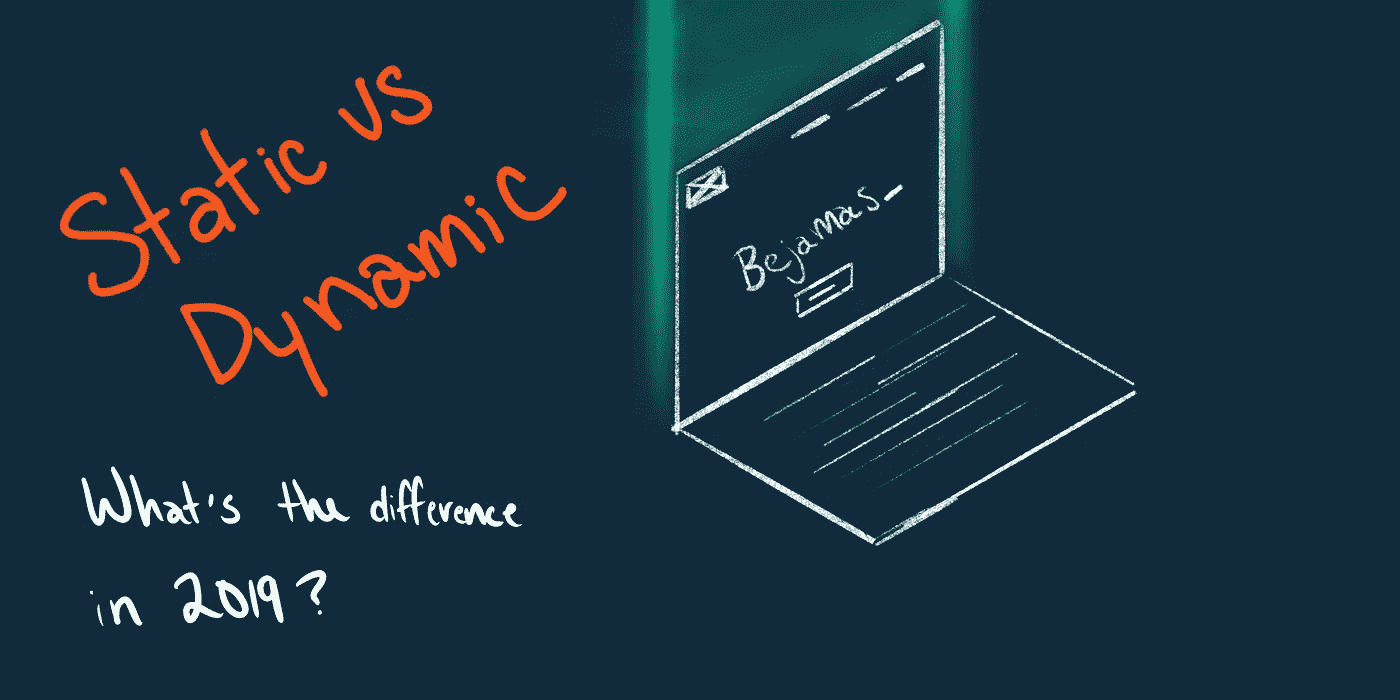 Static vs
Dynamic
What's the difference
in 2019?
Bejamas_